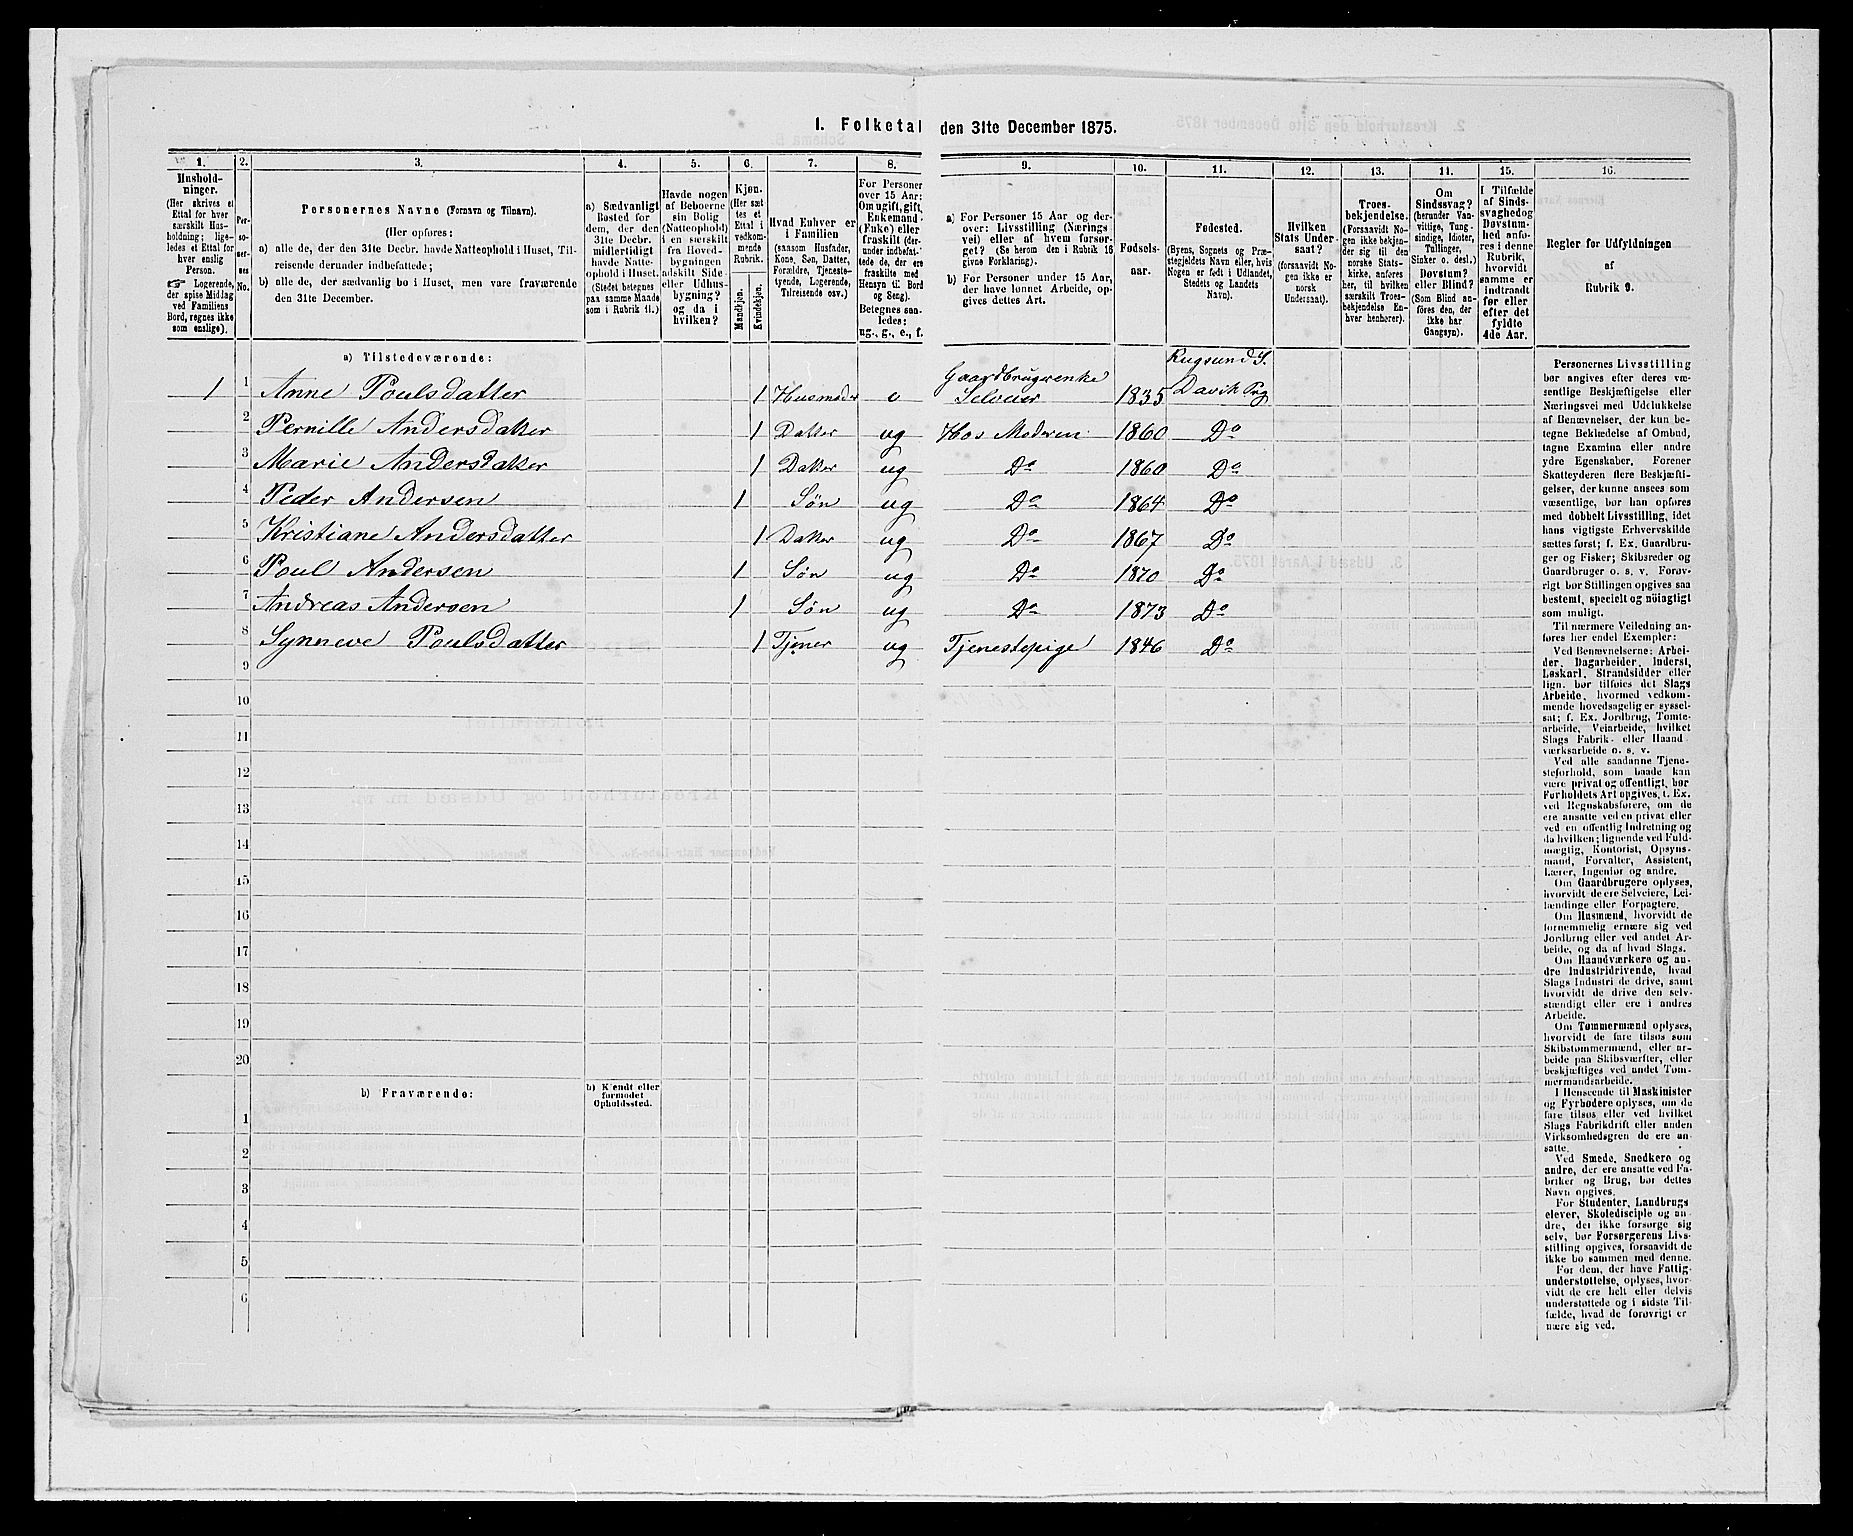 1. Folketal den 31te December 1875.
1. 2. 3. 4. 5. 6. 7. 8. 9. 10. 11. 12. 13. 14. 15. 16.
Hushold-
ninger.
(Her skrives et
Ettal for hver
særskilt Hus-
holdning; lige-
ledes et Ettal for
hver enslig
Person.
☞ Logerende,
der spise Middag
ved Familiens
Bord, regnes ikke
som enslige).
Per-
so-
ner-
nes
No.
Personernes Navne (Fornavn og Tilnavn).
(Her opføres:
a) alle de, der den 31te Decbr. havde Natteophold i Huset, Til-
reisende derunder indbefattede;
b) alle de, der sædvanlig bo i Huset, men vare fraværende
den 31te December.
a) Sædvanligt
Bosted for
dem, der den
31te Decbr.
midlertidigt
havde Natte-
ophold i Huset.
(Stedet betegnes
paa samme Maade
som i Rubrik 11.)
Havde nogen
af Beboerne
sin Bolig
(Natteophold)
i en særskilt
fra Hoved-
bygningen
adskilt Side-
eller Udhus-
bygning?
og da i
hvilken?
Kjøn.
(Her sæt-
tes et
Ettal i
vedkom-
mende
Rubrik.
Mandkjøn.
Kvindekjøn.
Hvad Enhver er
i Familien
(saasom Husfader,
Kone, Søn, Datter,
Forældre, Tjeneste-
tyende, Logerende,
Tilreisende osv.)
For Personer
over 15 Aar:
Om ugift, gift,
Enkemand
(Enke) eller
fraskilt (der-
under indbefat-
tede de, der ere
fraskilte med
Hensyn til Bord
og Seng).
Betegnes saa-
ledes:
ug., g., e., f.
a) For Personer 15 Aar og der-
over: Livsstilling (Nærings-
vei) eller af hvem forsør-
get? (Se herom den i Rubrik 16
givne Forklaring).
b) For Personer under 15 Aar,
der have lønnet Arbeide, op-
gives dettes Art.
Fødsels-
aar.
Fødested.
(Byens, Sognets og Præ-
stegjeldets Navn eller, hvis
Nogen er født i Udlandet,
Stedets og Landets
Navn).
Hvilken
Stats Under-
saat?
(forsaavidt No-
gen ikke er
norsk
Undersaat).
Troes-
bekjendelse.
(Forsaavidt No-
gen ikke bekjen-
der sig til den
norske Stats-
kirke, anføres
her, til hvilken
særskilt Troes-
bekjendelse En-
hver henhører).
Om
Sindssvag?
(herunder Van-
vittige, Tung-
sindige, Idioter,
Tullinger,
Sinker o. desl.)
Døvstum?
eller Blind?
(Som Blind an-
føres den, der
ikke har
Gangsyn).
I Tilfælde
af Sinds-
svaghed og
Døvstum-
hed anfø-
res i denne
Rubrik,
hvorvidt
samme er
indtraadt
før eller
efter det
fyldte
4de Aar.
Regler for Udfyldningen
af
Rubrik 9.
a) Tilstedeværende:
1 1 Anne Poulsdatter 1 Husmoder e Gaardbrugerenke Selveier 1835 Rugsund S. Davik Prg
2 Pernille Andersdatter 1 Datter ug Hos Moderen 1860 Do
3 Marie Andersdatter 1 Datter ug Do 1860 Do
4 Peder Andersen 1 Søn ug Do 1864 Do
5 Kristiane Andersdatter 1 Datter ug Do 1867 Do
6 Poul Andersen 1 Søn ug Do 1870 Do
7 Andreas Andersen 1 Søn ug Do 1873 Do
8 Synneve Poulsdatter 1 Tjener ug Tjenestepige 1846 Do
9
10
11
12
13
14
15
16
17
18
19
20
b) Fraværende:
b) Kjendt eller
formodet
Opholdssted.
1
2
3
4
5
6
Personernes Livsstilling
bør angives efter deres væ-
sentlige Beskjæftigelse eller
Næringsvei med Udelukkelse
af Benævnelser, der kun be-
tegne Beklædelse af Ombud,
tagne Examina eller andre
ydre Egenskaber. Forener
Skatteyderen flere Beskjæfti-
gelser, der kunne ansees som
væsentlige, bør han opføres
med dobbelt Livsstilling, idet
hans vigtigste Erhvervskilde
sættes først; f. Ex. Gaardbru-
ger og Fisker; Skibsreder og
Gaardbruger o. s. v. Forøv-
rigt bør Stillingen opgives saa
bestemt, specielt og nøiagtigt
som muligt.
Til nærmere Veiledning an-
føres her endel Exempler:
Ved Benævnelserne: Arbei-
der, Dagarbeider, Inderst,
Løskarl, Strandsidder eller
lign. bør tilføies det Slags
Arbeide, hvormed vedkom-
mende hovedsagelig er syssel-
sat; f. Ex. Jordbrug, Tomte-
arbeide, Veiarbeide, hvilket
Slags Fabrik- eller Haand-
værksarbeide o. s. v.
Ved alle saadanne Tjene-
steforhold, som baade kan
være privat og offentligt, bør
Forholdets Art opgives, t. Ex.
ved Regnskabsførere, om de
ere ansatte ved en privat eller
ved en offentlig Indretning og
da hvilken; lignende ved Fuld-
mægtig, Kontorist, Opsyns-
mand, Forvalter, Assistent,
Lærer, Ingeniør og andre.
Om Gaardbrugere oplyses,
hvorvidt de ere Selveiere, Lei-
lændinge eller Forpagtere.
Om Husmænd, hvorvidt de
fornemmelig ernære sig ved
Jordbrug eller ved andet Ar-
beide, og da af hvad Slags.
Om Haandværkere og an-
dre Industridrivende, hvad
Slags Industri de drive, samt
hvorvidt de drive den selv-
stændigt eller ere i andres
Arbeide.
Om Tømmermænd oplyses,
hvorvidt de fare tilsøs som
Skibstømmermænd, eller ar-
beide paa Skibsværfter, eller
beskjæftiges ved andet Tøm-
mermandsarbeide.
I Henseende til Maskinister
og Fyrbødere oplyses, om de
fare tilsøs eller ved hvilket
Slags Fabrikdrift eller anden
Virksomhedsgren de ere an-
satte.
Ved Smede, Snedkere og
andre, der ere ansatte ved Fa-
briker og Brug, bør dettes
Navn opgives.
For Studenter, Landbrugs-
elever, Skoledisciple og an-
dre, der ikke forsørge sig
selv, bør Forsørgerens Livs-
stilling opgives, forsaavidt de
ikke bo sammen med denne.
For dem, der have Fattig-
understøttelse, oplyses, hvor-
vidt de ere helt eller delvis
understøttede og i sidste Til-
fælde, hvad de forøvrigt er-
nære sig ved.